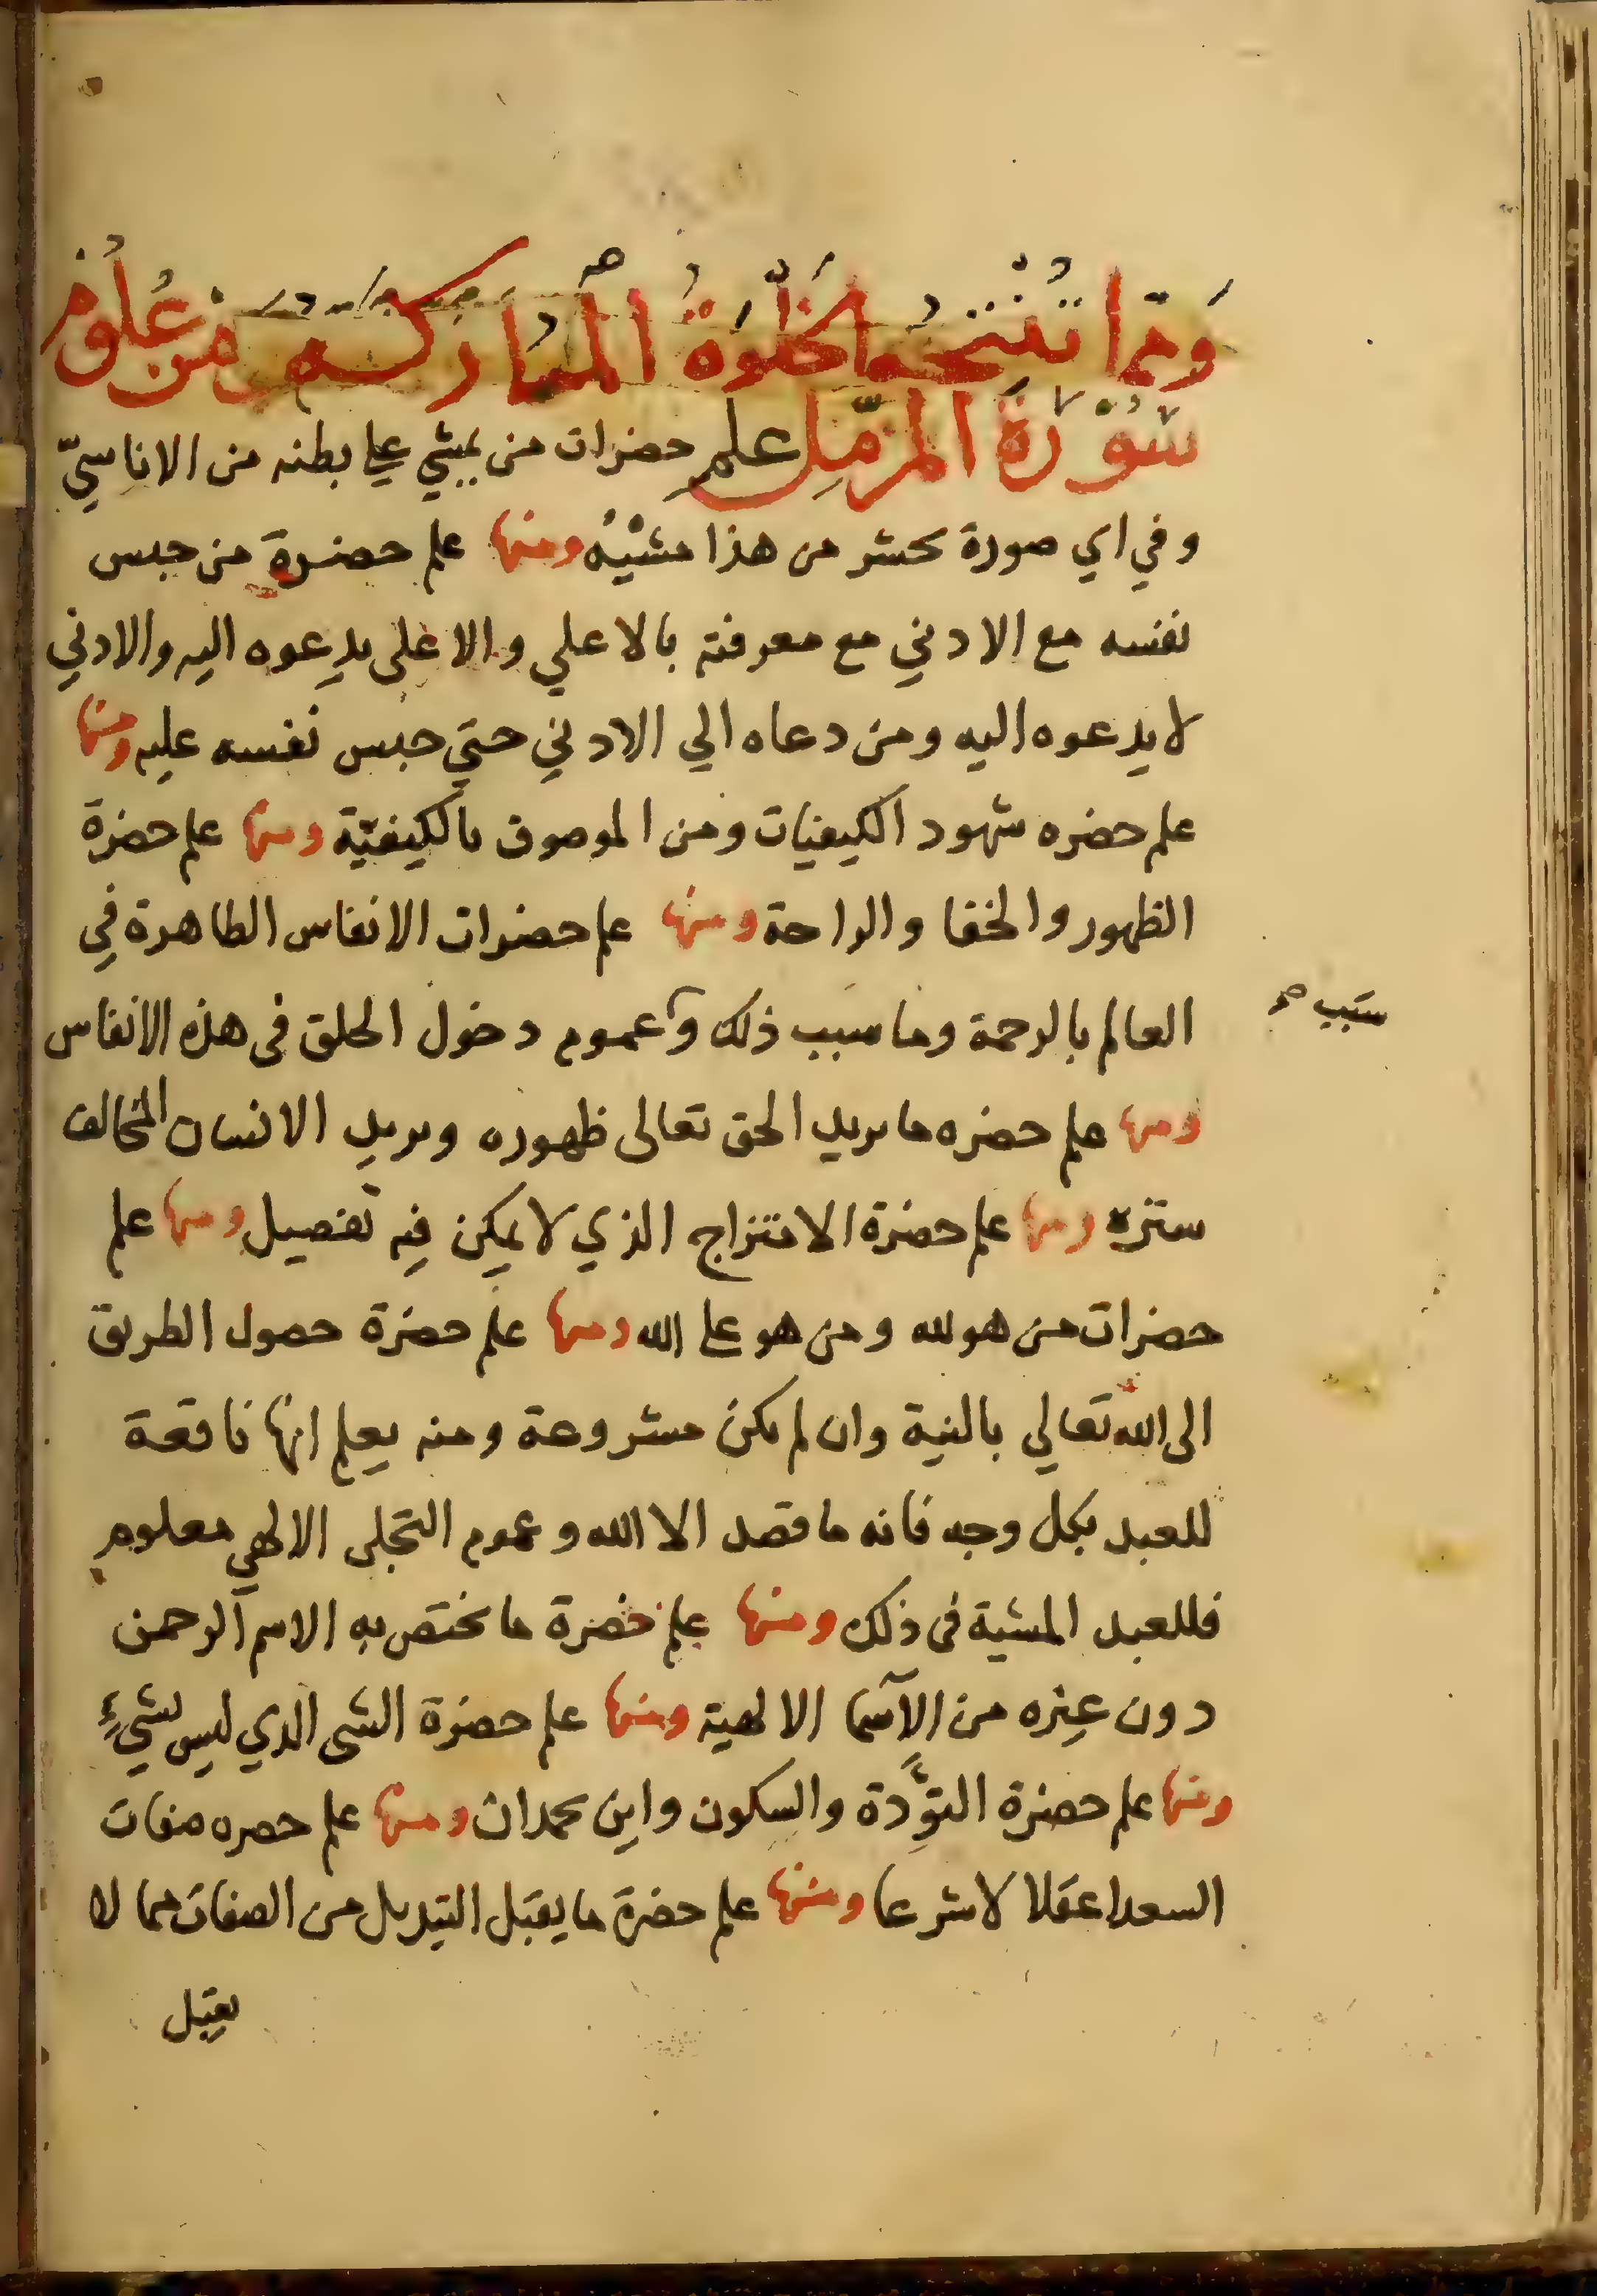 وَمِمَّا تُنْتِجُه الخَلْوَةُ المُبَاركه من عُلُومِ
سُوْرَةِ المزمّل علم حضرات من يمشي علي بطنه من الاناسيّ
وفي اي صورة يحشر من هذا مشيُه ومنها علم حضرة من حبس
نفسه مع الادني مع معرفته بالاعلي والاعلى يدعوه اليه والادني
لا يدعوه اليه ومن دعاه الي الادني حتي حبس نفسه عليه ومنها
علم حضره شهود الكيفيات ومن الموصوف بالكيفيّة ومنها علم حضرة
الظهور والخفا والراحة ومنها علم حضرات الانفاس الطاهرة في
العالم بالرحمة وما سبب ذلك وعموم دخول الخلق في هذه الانفاس
سَبب صح
ومنها علم حضره ما يريد الحق تعالى ظهوره ويريد الانسان المخالف
ستره ومنها علم حضرة الامتزاج الذي لا يمكن فيه تفصيل ومنها علم
حضرات من هو لله ومن هو علي الله ومنها علم حضرة حصول الطريق
الى الله تعالي بالنية وان لم يكن مشروعة ومنه يعلم انها نافعة
للعبد بكل وجه فانه ما قصد الا الله وعموم التجلى الالهي معلوم
فللعبد المشية في ذلك ومنها علم حضرة ما يختص به الاسم الرحمن
دون غيره من الاسما الالهية ومنها علم حضرة الشى الذي ليس بشيءٍ
ومنها علم حضرة التؤدة والسكون واين يحمدان ومنها علم حصره صفات
السعدا عقلا لا شرعا ومنها علم حضرة ما يقبل التبديل من الصفات مما لا
يقبل